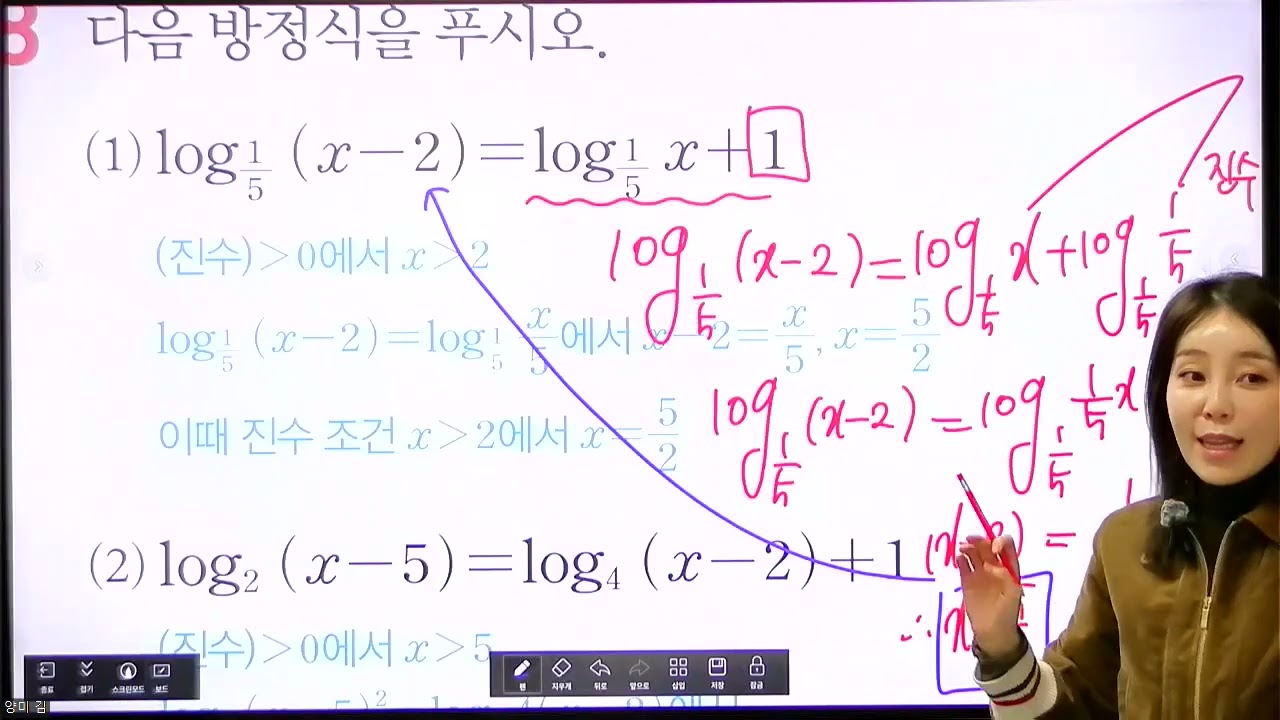 8 다음 방정식을 푸시오.
(1) log_{1/5} (x-2)=log_{1/5} x+1
진수
log_{1/5} (x-2)=log_{1/5} x+log_{1/5} 1/5
(진수)>0에서 x>2
log_{1/5} (x-2)=log_{1/5} x/5에서 x-2=x/5, x=5/2
log_{1/5} (x-2)=log_{1/5} 1/5 x
이때 진수 조건 x>2에서 x=5/2
(2) log₂ (x-5)=log₄ (x-2)+1
(진수)>0에서 x>5
종료 접기 스크린모드 보드
펜 지우개 뒤로 앞으로 삽입 저장 잠금
양미 김